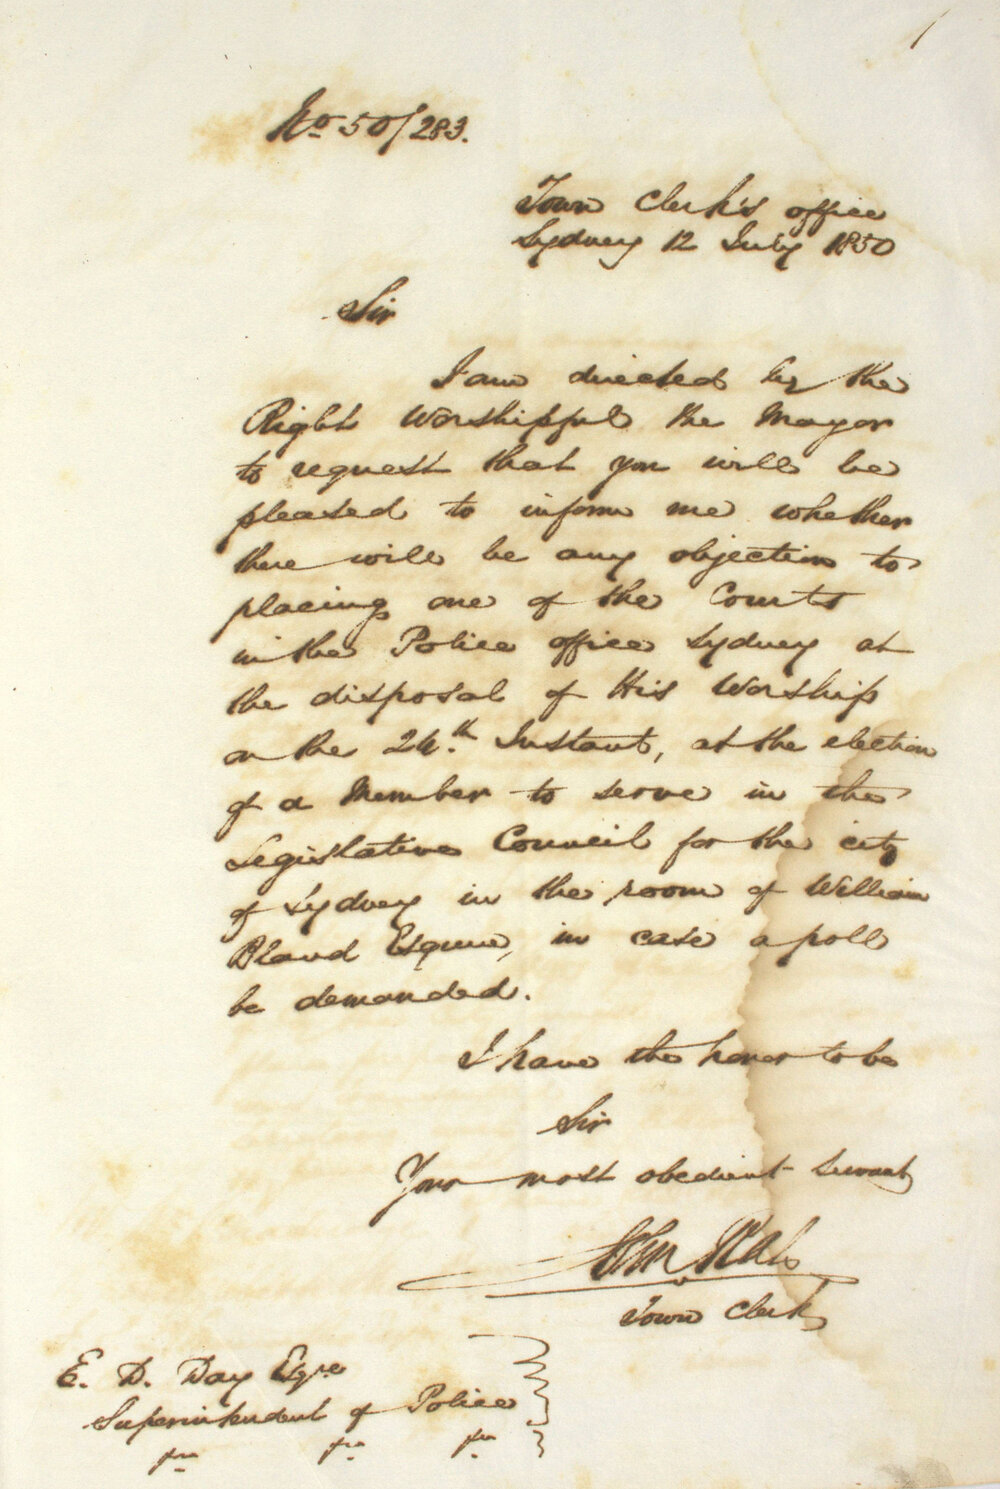 No 50/283.
Town Clerk's office
Sydney 12 July 1850
Sir
I am directed by the
Right Worshipful the Mayor
to request that you will be
pleased to inform me whether
there will be any objection to
placing one of the Courts
in the Police office Sydney at
the disposal of His Worship
on the 24th Instant, at the election
of a Member to serve in the
Legislative Council for the city
of Sydney in the room of William
Bland Esquire, in case a poll
be demanded.
I have the honor to be
Sir
Your most obedient servant
John
Town Clerk
E. D. Day Esqre
Superintendent of Police